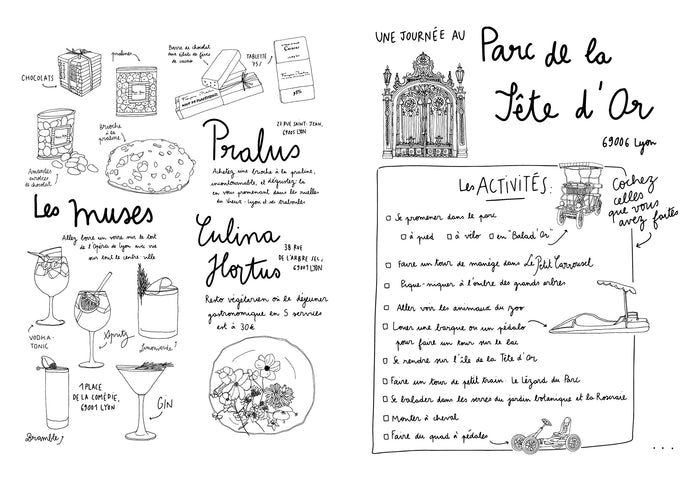 CHOCOLATS
pralines
Barre de chocolat
aux éclats de fèves
de cacao
TABLETTE
75%
Amandes
enrobées
de chocolat
Brioche
à la
praline
Pralus
27 RUE SAINT-JEAN,
69005 LYON
Achetez une brioche à la praline,
incontournable, et dégustez-la
en vous promenant dans les ruelles
du Vieux-Lyon et ses traboules
Les Muses
Allez boire un verre sur le toit
de l'Opéra de Lyon avec vue
sur tout le centre-ville
VODKA-
TONIC
Spritz
Limoncello
Bramble
1 PLACE
DE LA COMÉDIE,
69001 LYON
GIN
Culina
Hortus
38 RUE
DE L'ARBRE SEC,
69001 LYON
Resto végétarien où le déjeuner
gastronomique en 5 services
est à 30€
UNE JOURNÉE AU
Parc de la
Tête d'Or
69006 Lyon
Les ACTIVITÉS:
Cochez
celles
que vous
avez faites
Se promener dans le parc
à pied à vélo en "Balad'Or"
Faire un tour de manège dans Le Petit Carrousel
Pique-niquer à l'ombre des grands arbres
Aller voir les animaux du zoo
Louer une barque ou un pédalo
pour faire un tour sur le lac
Se rendre sur l'île de la Tête d'Or
Faire un tour de petit train - Le Lézard du Parc
Se balader dans les serres du jardin botanique et la Roseraie
Monter à cheval
Faire du quad à pédales
...